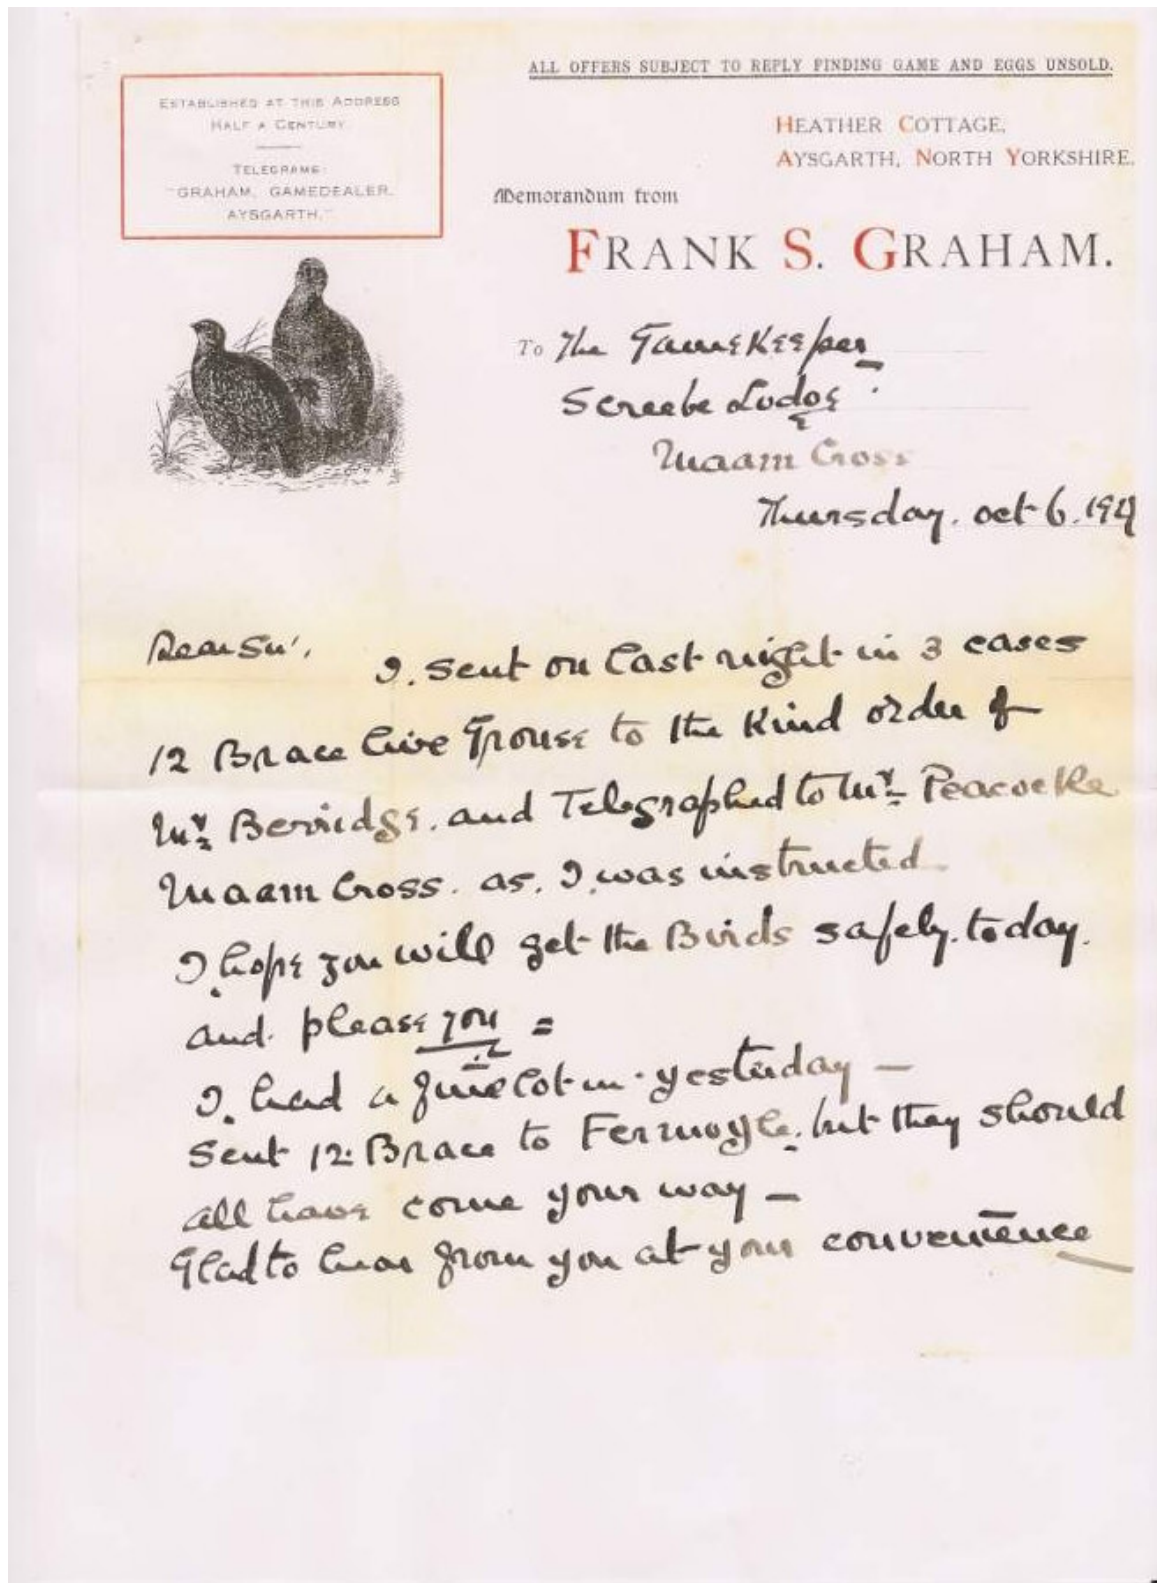 ALL OFFERS SUBJECT TO REPLY FINDING GAME AND EGGS UNSOLD.
ESTABLISHED AT THIS ADDRESS
HALF A CENTURY.
TELEGRAMS:
"GRAHAM, GAMEDEALER,
AYSGARTH."
HEATHER COTTAGE,
AYSGARTH, NORTH YORKSHIRE.
Memorandum from
FRANK S. GRAHAM.
To The GameKeeper
Screebe Lodge
Maam Cross
Thursday. oct 6.
Dear Sir,
I. sent on last night in 3 cases
12 Brace live Grouse to the Kind order of
Mr Berridge. and Telegraphed to Mr Peacocke
Maam Cross. as. I. was instructed
I. hope you will get the Birds safely. today.
and. please you =
I. had a fine lot in. yesterday —
Sent 12. Brace to Fermoyle. but they should
all have come your way —
Glad to hear from you at your convenience